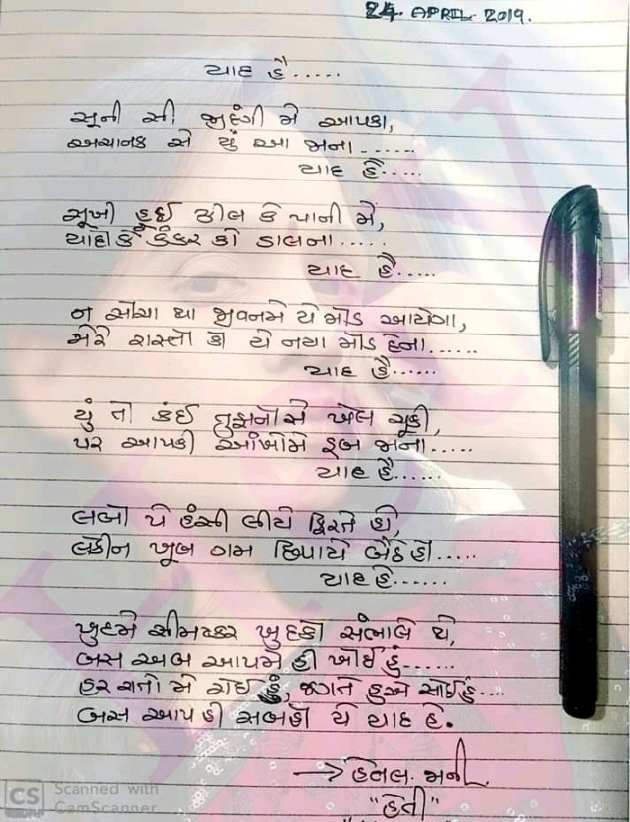 24. APRIL 2019.
યાદ હૈ.....
સૂની સી જીંદગી મે આપકા,
અચાનક સે યું આ જાના ......
યાદ હૈ.....
સૂખી હૂઈ ઝીલ કે પાની મે,
યાદો કે કંકર કો ડાલના.....
યાદ હૈ.....
ન સોચા થા જીવનમે યે મોડ આયેગા,
મેરે રાસ્તો કો યે નયા મોડ દેના......
યાદ હૈ......
યું તો કંઈ તુફાનોસે ખેલ ચૂકી,
પર આપકી આંખોમે ડૂબ જાના.....
યાદ હૈ......
લબો પે હંસી લીયે ફિરતે હો,
લેકીન ખૂબ ગમ છિપાયે બૈઠે હો.....
યાદ હે......
ખુદમે સીમટકર ખુદકો સંભાલે થે,
બસ અબ આપમે હી ખોઈ હું......
હર રાતો મે રોઈ હું, જાગતે હુએ સોઈ હું...
બસ આપ હી સબકો યે યાદ હે.
→ હેતલ. જાની
"હેતી"
CS
Scanned with
CamScanner